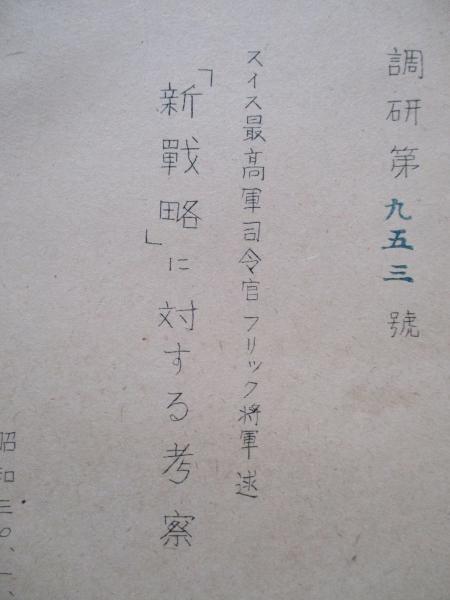 調研第九五三號
スイス最高軍司令官フリック将軍述
「新戰略」に対する考察
昭和三〇、一、